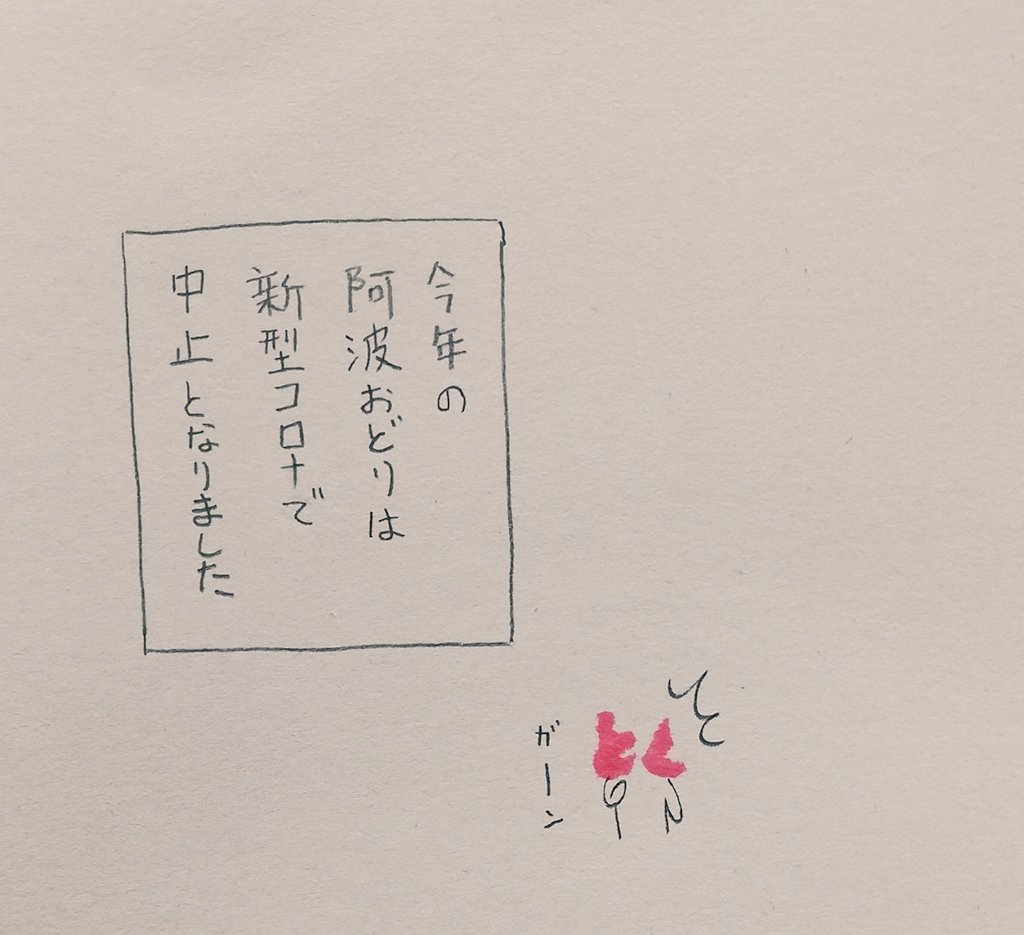 今年の
阿波おどりは
新型コロナで
中止となりました
ガーン
とく